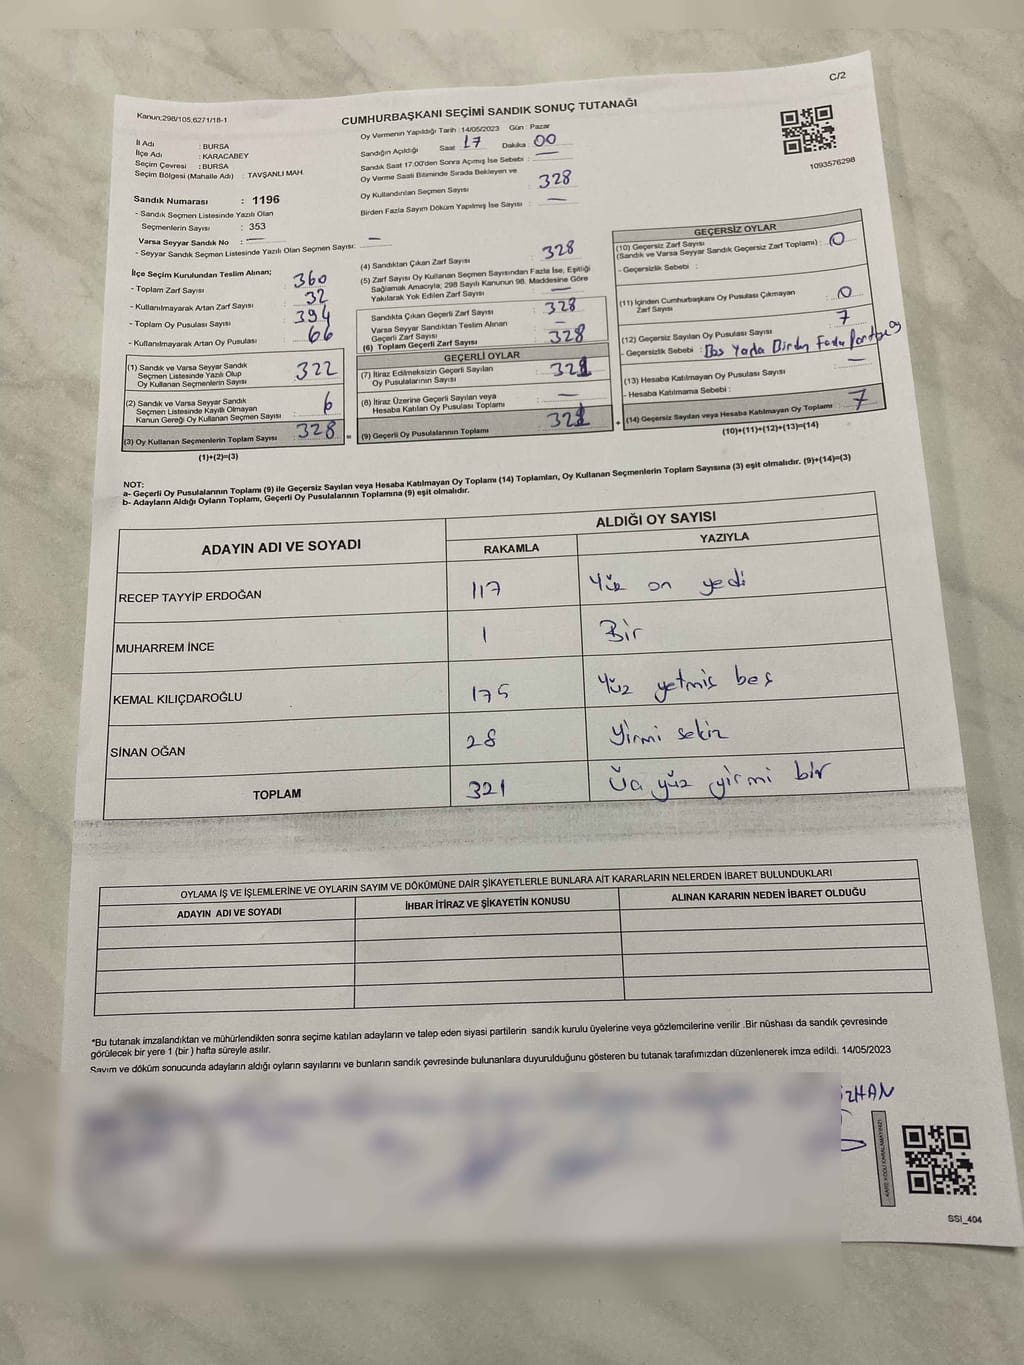 C/2
Kanun;298/105,6271/18-1
CUMHURBAŞKANI SEÇİMİ SANDIK SONUÇ TUTANAĞI
İl Adı : BURSA
İlçe Adı : KARACABEY
Seçim Çevresi : BURSA
Seçim Bölgesi (Mahalle Adı) : TAVŞANLI MAH.
Sandık Numarası : 1196
- Sandık Seçmen Listesinde Yazılı Olan
Seçmenlerin Sayısı : 353
Varsa Seyyar Sandık No : —
- Seyyar Sandık Seçmen Listesinde Yazılı Olan Seçmen Sayısı: —
Oy Vermenin Yapıldığı Tarih : 14/05/2023 Gün : Pazar
Sandığın Açıldığı Saat : 17 Dakika : 00
Sandık Saat 17.00'den Sonra Açımış İse Sebebi : —
Oy Verme Saati Bitiminde Sırada Bekleyen ve
Oy Kullandırılan Seçmen Sayısı : 328
Birden Fazla Sayım Döküm Yapılmış İse Sayısı : —
1093576298
İlçe Seçim Kurulundan Teslim Alınan;
- Toplam Zarf Sayısı : 360
- Kullanılmayarak Artan Zarf Sayısı : 32
- Toplam Oy Pusulası Sayısı : 394
- Kullanılmayarak Artan Oy Pusulası : 66
(1) Sandık ve Varsa Seyyar Sandık
Seçmen Listesinde Yazılı Olup
Oy Kullanan Seçmenlerin Sayısı : 322
(2) Sandık ve Varsa Seyyar Sandık
Seçmen Listesinde Kayıtlı Olmayan
Kanun Gereği Oy Kullanan Seçmen Sayısı : 6
(3) Oy Kullanan Seçmenlerin Toplam Sayısı : 328
(1)+(2)=(3)
(4) Sandıktan Çıkan Zarf Sayısı : 328
(5) Zarf Sayısı Oy Kullanan Seçmen Sayısından Fazla İse, Eşitliği
Sağlamak Amacıyla; 298 Sayılı Kanunun 98. Maddesine Göre
Yakılarak Yok Edilen Zarf Sayısı : —
Sandıkta Çıkan Geçerli Zarf Sayısı : 328
Varsa Seyyar Sandıktan Teslim Alınan
Geçerli Zarf Sayısı : —
(6) Toplam Geçerli Zarf Sayısı : 328
GEÇERLİ OYLAR
(7) İtiraz Edilmeksizin Geçerli Sayılan
Oy Pusulalarının Sayısı : 321
(8) İtiraz Üzerine Geçerli Sayılan veya
Hesaba Katılan Oy Pusulası Toplamı : —
= (9) Geçerli Oy Pusulalarının Toplamı : 321
GEÇERSİZ OYLAR
(10) Geçersiz Zarf Sayısı
(Sandık ve Varsa Seyyar Sandık Geçersiz Zarf Toplamı) : 0
- Geçersizlik Sebebi :
(11) İçinden Cumhurbaşkanı Oy Pusulası Çıkmayan
Zarf Sayısı : 0
(12) Geçersiz Sayılan Oy Pusulası Sayısı : 7
- Geçersizlik Sebebi : Boş Yada Birden Fazla
(13) Hesaba Katılmayan Oy Pusulası Sayısı : —
- Hesaba Katılmama Sebebi :
+ (14) Geçersiz Sayılan veya Hesaba Katılmayan Oy Toplamı : 7
(10)+(11)+(12)+(13)=(14)
NOT:
a- Geçerli Oy Pusulalarının Toplamı (9) ile Geçersiz Sayılan veya Hesaba Katılmayan Oy Toplamı (14) Toplamları, Oy Kullanan Seçmenlerin Toplam Sayısına (3) eşit olmalıdır. (9)+(14)=(3)
b- Adayların Aldığı Oyların Toplamı, Geçerli Oy Pusulalarının Toplamına (9) eşit olmalıdır.
ADAYIN ADI VE SOYADI ALDIĞI OY SAYISI
RAKAMLA YAZIYLA
RECEP TAYYİP ERDOĞAN 117 Yüz on yedi
MUHARREM İNCE 1 Bir
KEMAL KILIÇDAROĞLU 175 Yüz yetmiş beş
SİNAN OĞAN 28 Yirmi sekiz
TOPLAM 321 Üç yüz yirmi bir
OYLAMA İŞ VE İŞLEMLERİNE VE OYLARIN SAYIM VE DÖKÜMÜNE DAİR ŞİKAYETLERLE BUNLARA AİT KARARLARIN NELERDEN İBARET BULUNDUKLARI
ADAYIN ADI VE SOYADI İHBAR İTİRAZ VE ŞİKAYETİN KONUSU ALINAN KARARIN NEDEN İBARET OLDUĞU
*Bu tutanak imzalandıktan ve mühürlendikten sonra seçime katılan adayların ve talep eden siyasi partilerin sandık kurulu üyelerine veya gözlemcilerine verilir .Bir nüshası da sandık çevresinde
görülecek bir yere 1 (bir ) hafta süreyle asılır.
Sayım ve döküm sonucunda adayların aldığı oyların sayılarını ve bunların sandık çevresinde bulunanlara duyurulduğunu gösteren bu tutanak tarafımızdan düzenlenerek imza edildi. 14/05/2023
SSİ_404